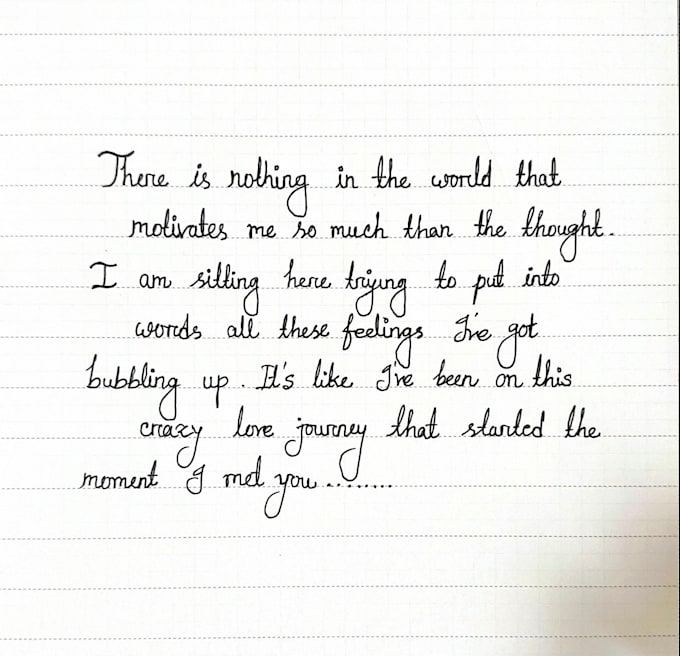 There is nothing in the world that
motivates me so much than the thought.
I am sitting here trying to put into
words all these feelings I've got
bubbling up. It's like I've been on this
crazy love journey that started the
moment I met you.........